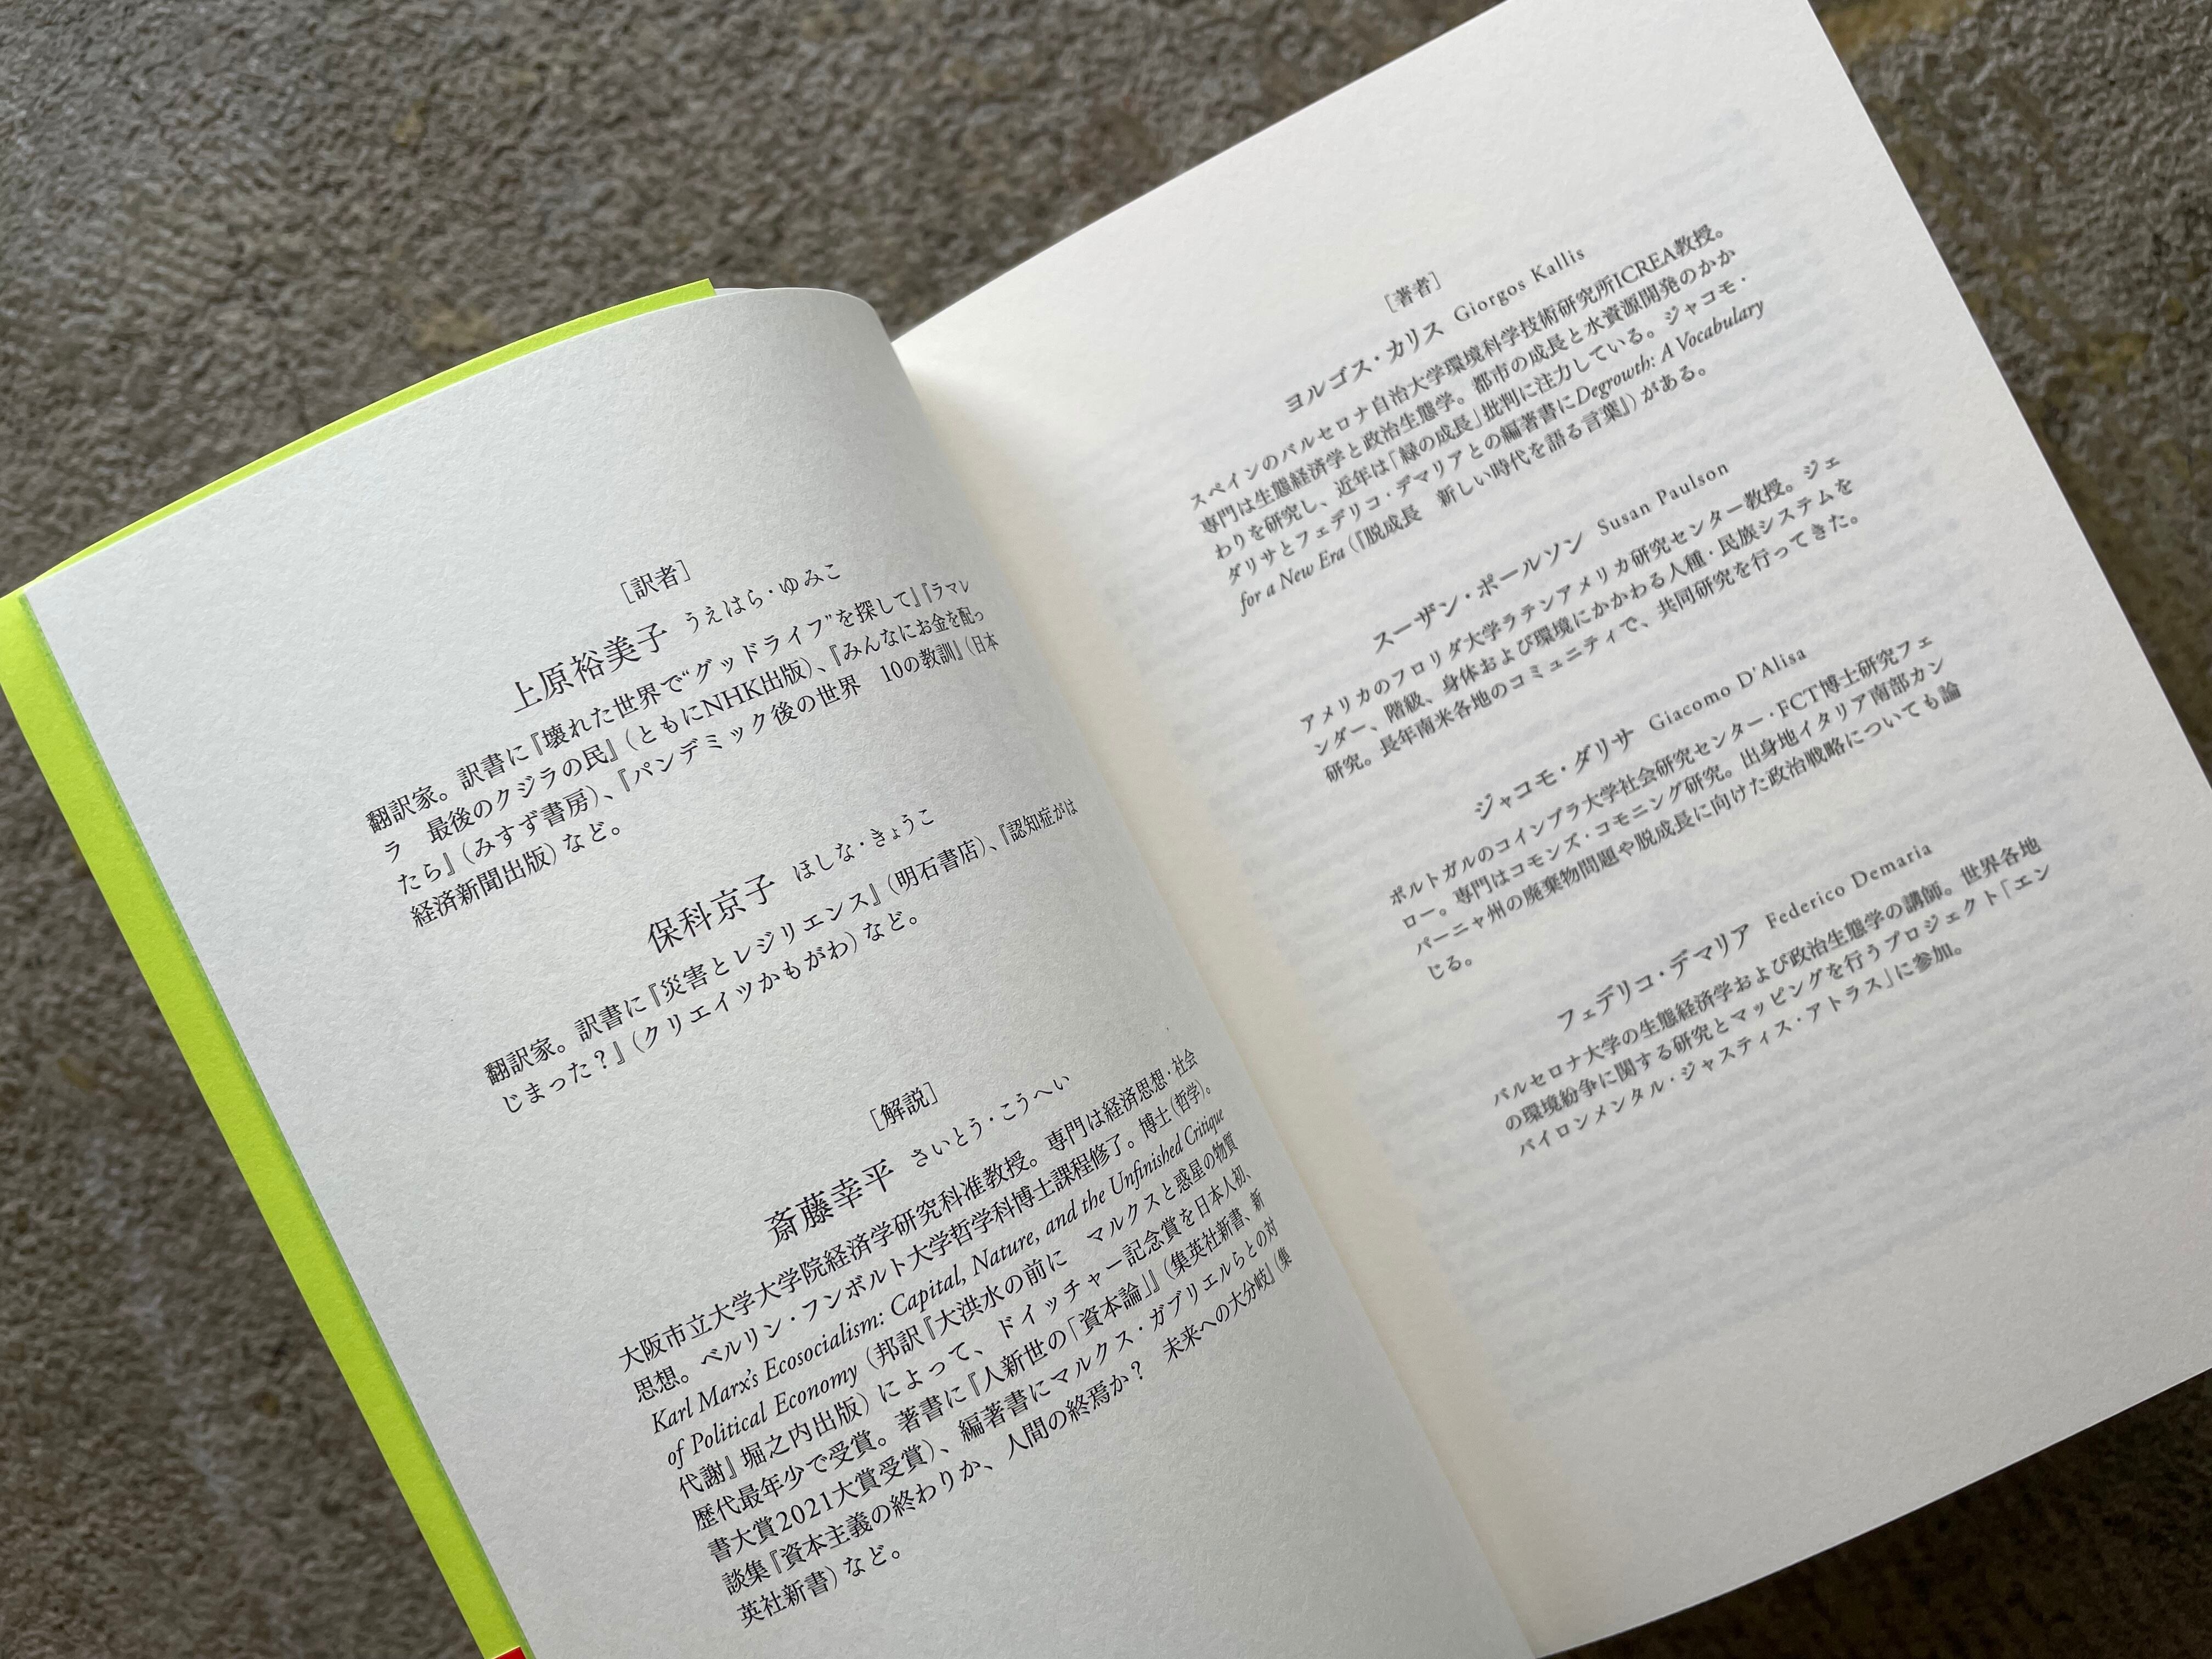 [訳者]
上原裕美子 うえはら・ゆみこ
翻訳家。訳書に『壊れた世界で“グッドライフ”を探して』『ラマレ
ラ 最後のクジラの民』(ともにNHK出版)、『みんなにお金を配っ
たら』(みすず書房)、『パンデミック後の世界 10の教訓』(日本
経済新聞出版)など。
保科京子 ほしな・きょうこ
翻訳家。訳書に『災害とレジリエンス』(明石書店)、『認知症がは
じまった?』(クリエイツかもがわ)など。
[解説]
斎藤幸平 さいとう・こうへい
大阪市立大学大学院経済学研究科准教授。専門は経済思想・社会
思想。ベルリン・フンボルト大学哲学科博士課程修了。博士(哲学)。
Karl Marx's Ecosocialism: Capital, Nature, and the Unfinished Critique
of Political Economy (邦訳『大洪水の前に マルクスと惑星の物質
代謝』堀之内出版)によって、ドイッチャー記念賞を日本人初、
歴代最年少で受賞。著書に『人新世の「資本論」』(集英社新書、新
書大賞2021大賞受賞)、編著書にマルクス・ガブリエルらとの対
談集『資本主義の終わりか、人間の終焉か? 未来への大分岐』(集
英社新書)など。
[著者]
ヨルゴス・カリス Giorgos Kallis
スペインのバルセロナ自治大学環境科学技術研究所ICREA教授。
専門は生態経済学と政治生態学。都市の成長と水資源開発のかか
わりを研究し、近年は「緑の成長」批判に注力している。ジャコモ・
ダリサとフェデリコ・デマリアとの編著書にDegrowth: A Vocabulary
for a New Era(『脱成長 新しい時代を語る言葉』)がある。
スーザン・ポールソン Susan Paulson
アメリカのフロリダ大学ラテンアメリカ研究センター教授。ジェ
ンダー、階級、身体および環境にかかわる人種・民族システムを
研究。長年南米各地のコミュニティで、共同研究を行ってきた。
ジャコモ・ダリサ Giacomo D'Alisa
ポルトガルのコインブラ大学社会研究センター・FCT博士研究フェ
ロー。専門はコモンズ・コモニング研究。出身地イタリア南部カン
パーニャ州の廃棄物問題や脱成長に向けた政治戦略についても論
じる。
フェデリコ・デマリア Federico Demaria
バルセロナ大学の生態経済学および政治生態学の講師。世界各地
の環境紛争に関する研究とマッピングを行うプロジェクト「エン
バイロンメンタル・ジャスティス・アトラス」に参加。